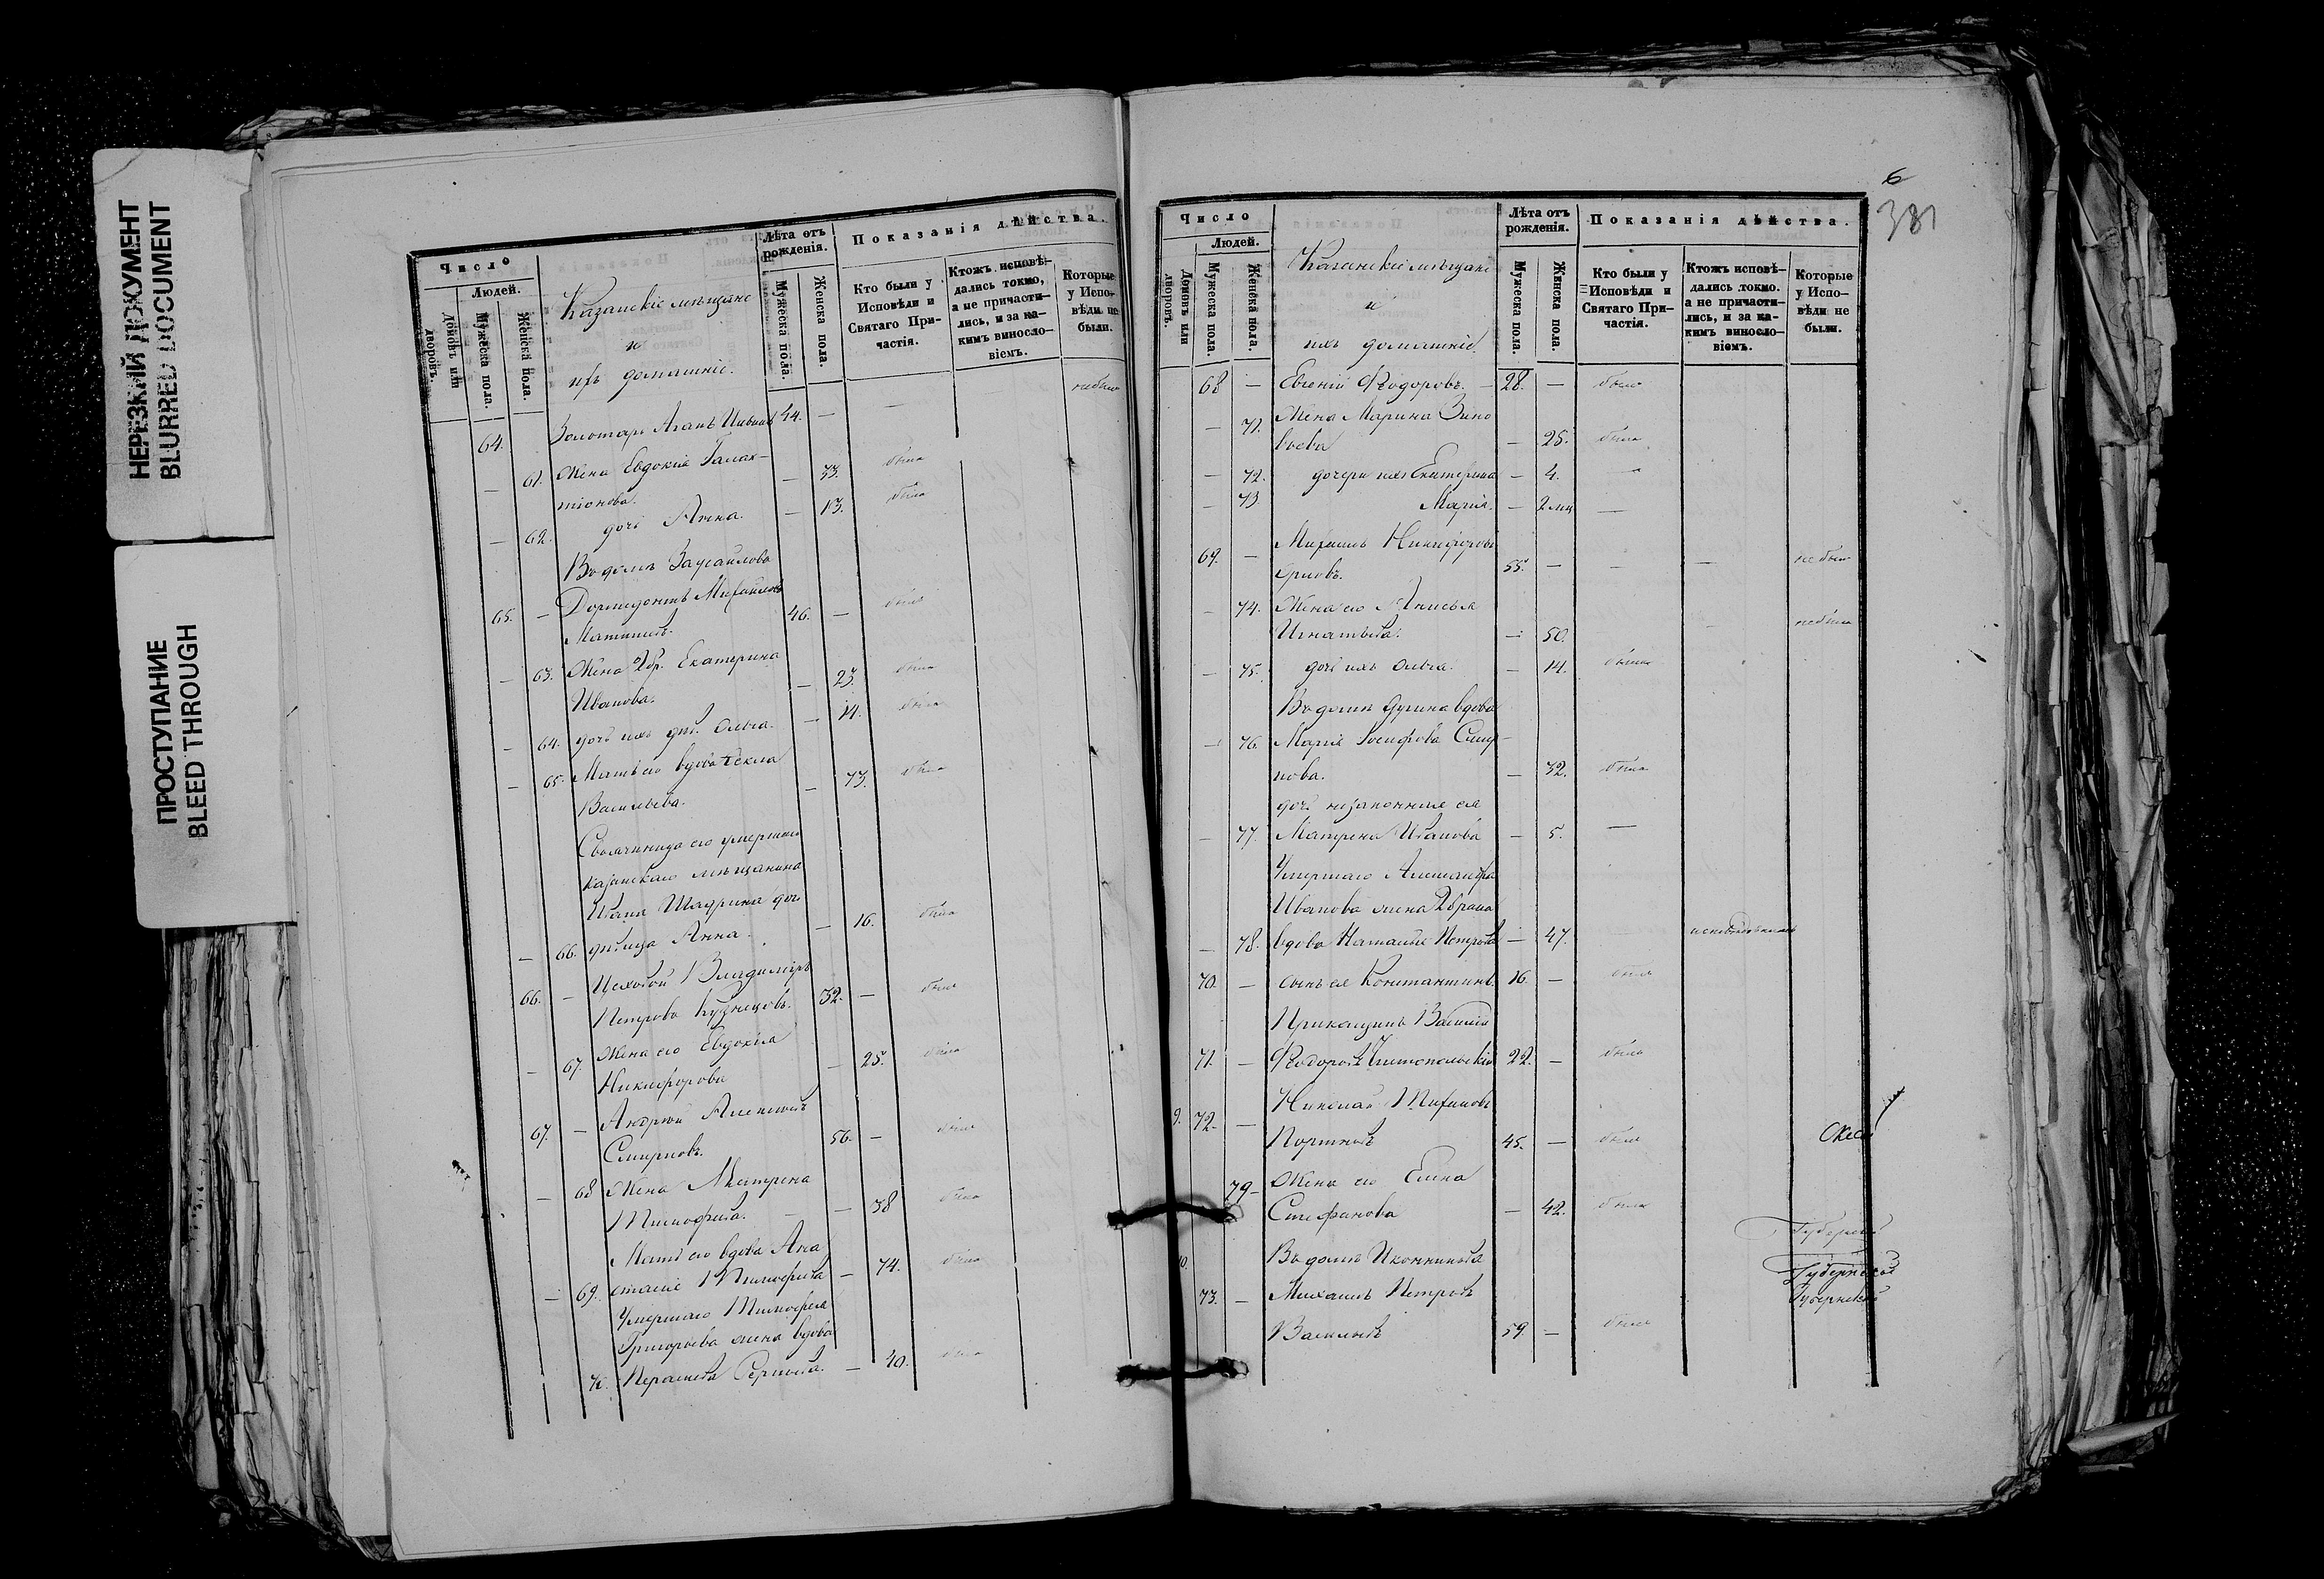 НЕРЕЗКИЙ ДОКУМЕНТ
BLURRED DOCUMENT
ПРОСТУПАНИЕ
BLEED THROUGH
Число
Людей.
Домовъ или дворовъ.
Мужеска пола.
Женска пола.
Казанскіе мѣщане
и
ихъ домашніе.
Лѣта отъ рожденія.
Мужеска пола.
Женска пола.
Показанія дѣйства.
Кто были у Исповѣди и Святаго Причастія.
Ктожъ исповѣдались токмо, а не причастились, и за какимъ винословіемъ.
Которые у Исповѣди не были.
64. Золотарь 44. — — небылъ
— 61. Жена Евдокія Галак-
тіонова. — 33. была
— 62. дочь Анна. — 13. была
Въ домѣ
65. — Дормидонтъ Михайловъ
46. — былъ
— 63. Жена 2бр. Екатерина
Иванова. — 23. была
— 64. дочь ихъ дѣв. Ольга. — 14. была
— 65. Мать его вдова Текла
Васильева. — 73. была
Своячиница его умершаго
казанскаго мѣщанина
Ивана Шадрина дочь
— 66. дѣвица Анна. — 16. была
66. — Цеховой Владиміръ
Петровъ Кузнецовъ. 32. — былъ
— 67. Жена его Евдокія
Никифорова — 25. была
67. — Андрей Алексѣевъ
Смирновъ. 56. — былъ
— 68 Жена Матрена
Тимофеева. — — 38 была
Мать его вдова Ана
— 69. стасія Тимофеева — 74. была
Умершаго Тимофея
Григорьева жена вдова
70. Пераскева Сергеева. — 40. была
6
381
Число
Людей.
Домовъ или дворовъ.
Мужеска пола.
Женска пола.
Казанскіе мѣщане
и
ихъ домашніе.
Лѣта отъ рожденія.
Мужеска пола.
Женска пола.
Показанія дѣйства.
Кто были у Исповѣди и Святаго Причастія.
Ктожъ исповѣдались токмо. а не причастились, и за какимъ винословіемъ.
Которые у Исповѣди не были.
68 — Евгеній Ѳеодоровъ. — 28. — былъ
— 71. Жена Марина Зино
вьева — 25. была
— 72. дочери ихъ Екатерина — 4. —
— 73 Марія. — 2 мц —
69. — Михаилъ Никифоровъ
55. — — — не былъ
— 74. Жена его Анисья
Игнатьева. — 50. небыла
— 75. дочь ихъ Ольга. — 14. была
Въ домѣ вдова
— 76. Марія Іосифова
нова. — 32. была
дочь незаконная ея
— 77. Матрена Иванова — 5. —
Умершаго Александра
Иванова жена 2брака
— 78. вдова Наталья Петрова — 47.
70. — сынъ ея Константинъ. 16. — былъ
Прикащикъ Василій
71. — Ѳеодоровъ Чистопольскій 22. — былъ
Николай Тихановъ
9. 72. — Портновъ 45. — былъ
79 — Жена его Елена
Стефанова — 42. была
10. Въ домѣ
73. — Михаилъ Петровъ
Васильевъ 59. — былъ
Губернской
Губернской